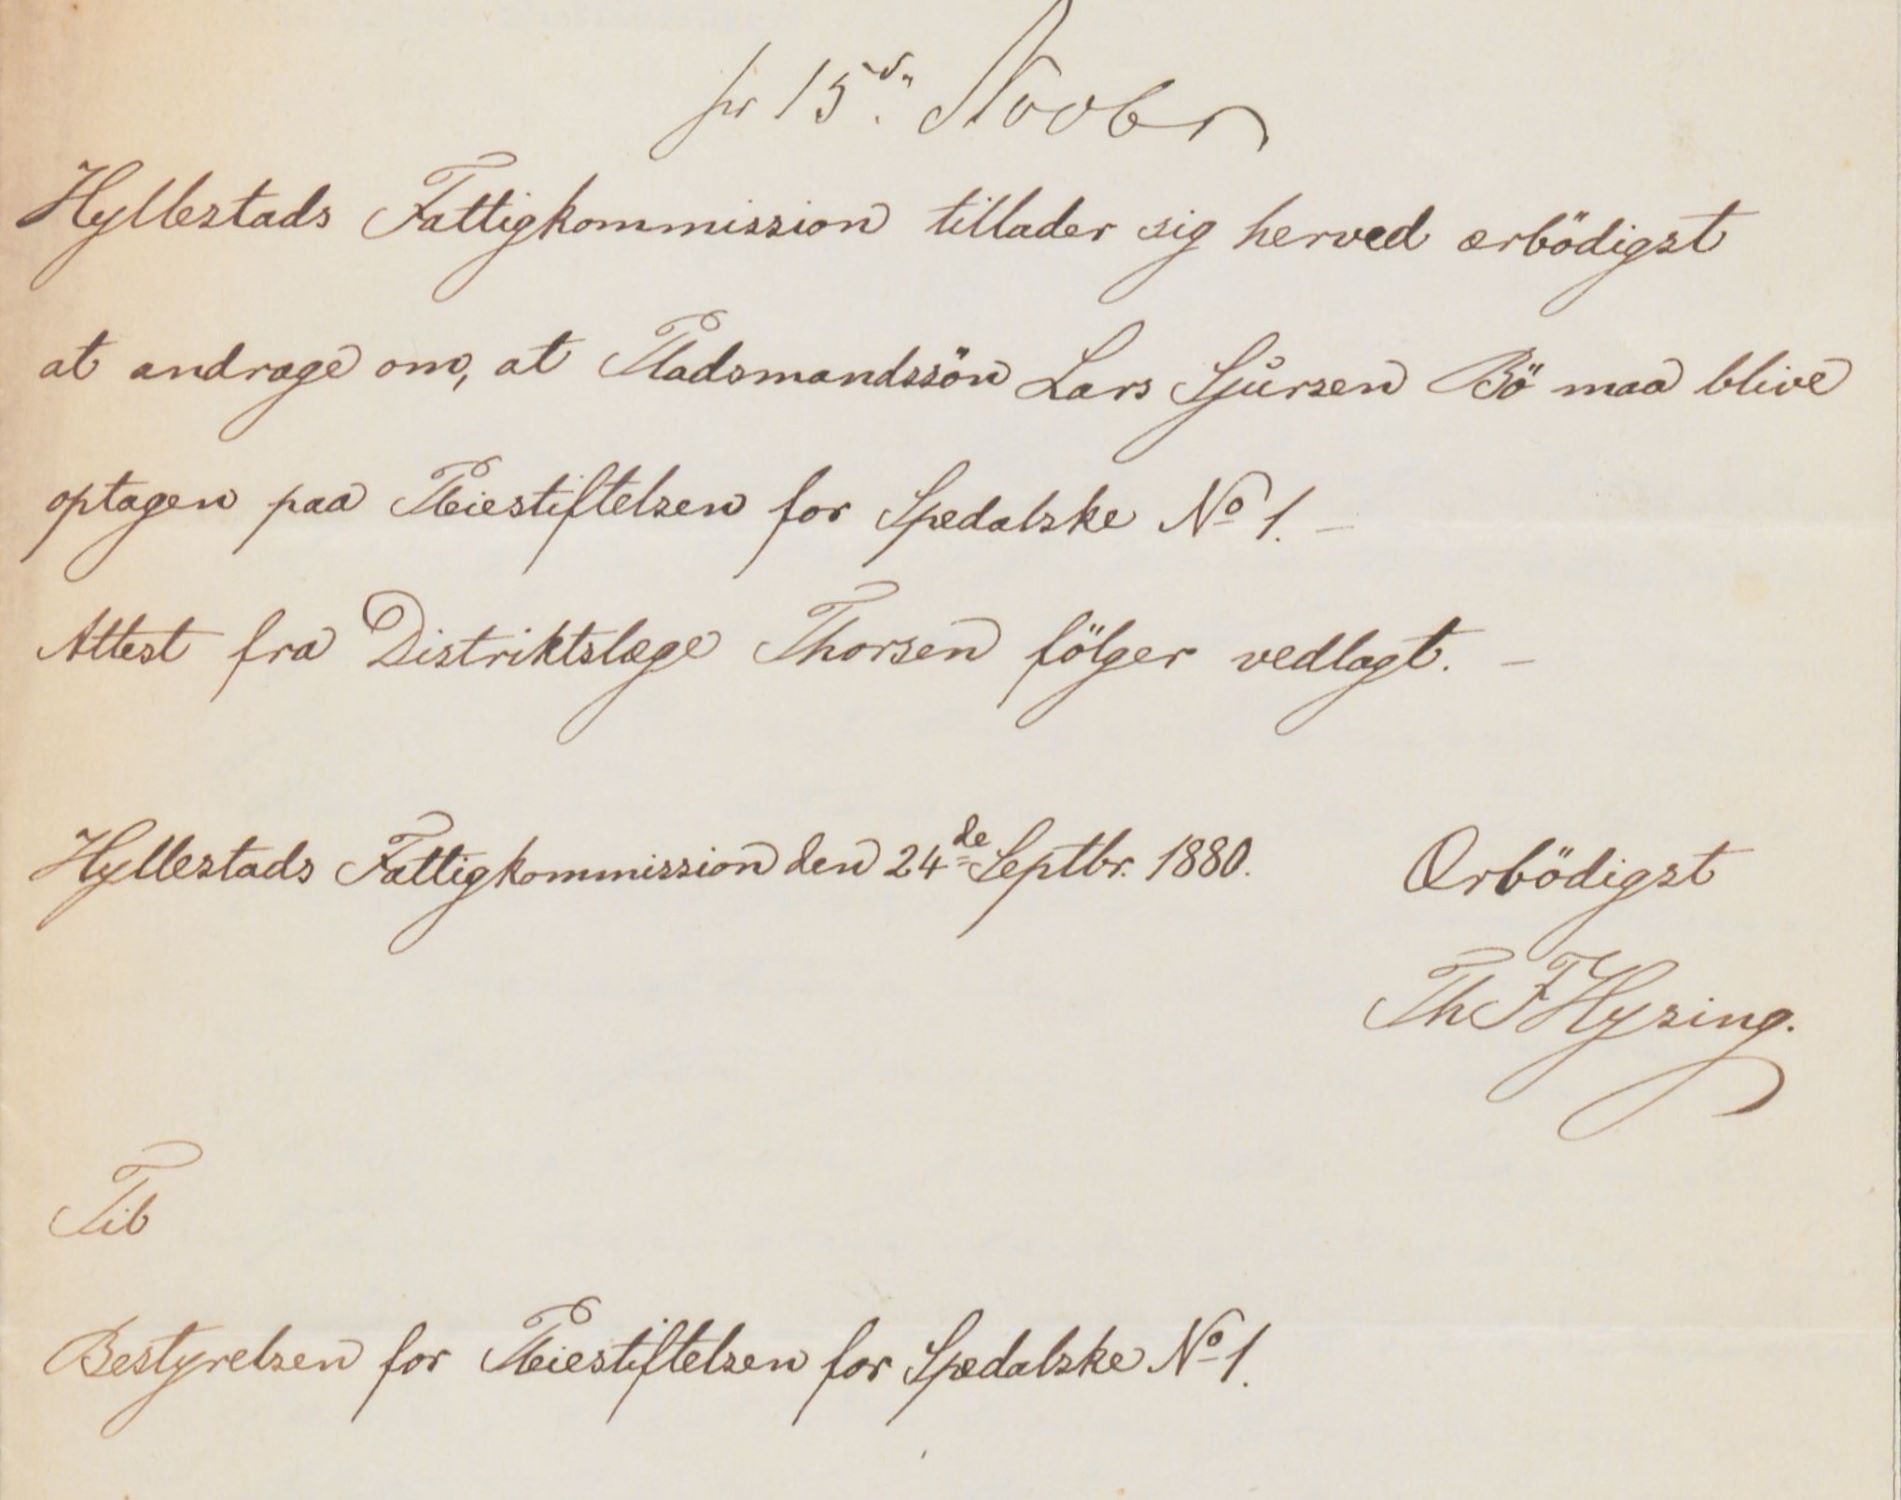 før 15de Novbr
Hyllestads Fattigkommission tillader sig herved ærbödigst
at andrage om, at Pladsmandssön Lars Sjursen Bö maa blive
optagen paa Pleiestiftelsen for Spedalske No 1. –
Attest fra Distriktslæge Thorsen fölger vedlagt. –
Hyllestads Fattigkommission den 24de Septbr. 1880. Ærbödigst
Th F Hysing.
Til
Bestyrelsen for Pleiestiftelsen for Spedalske No 1.